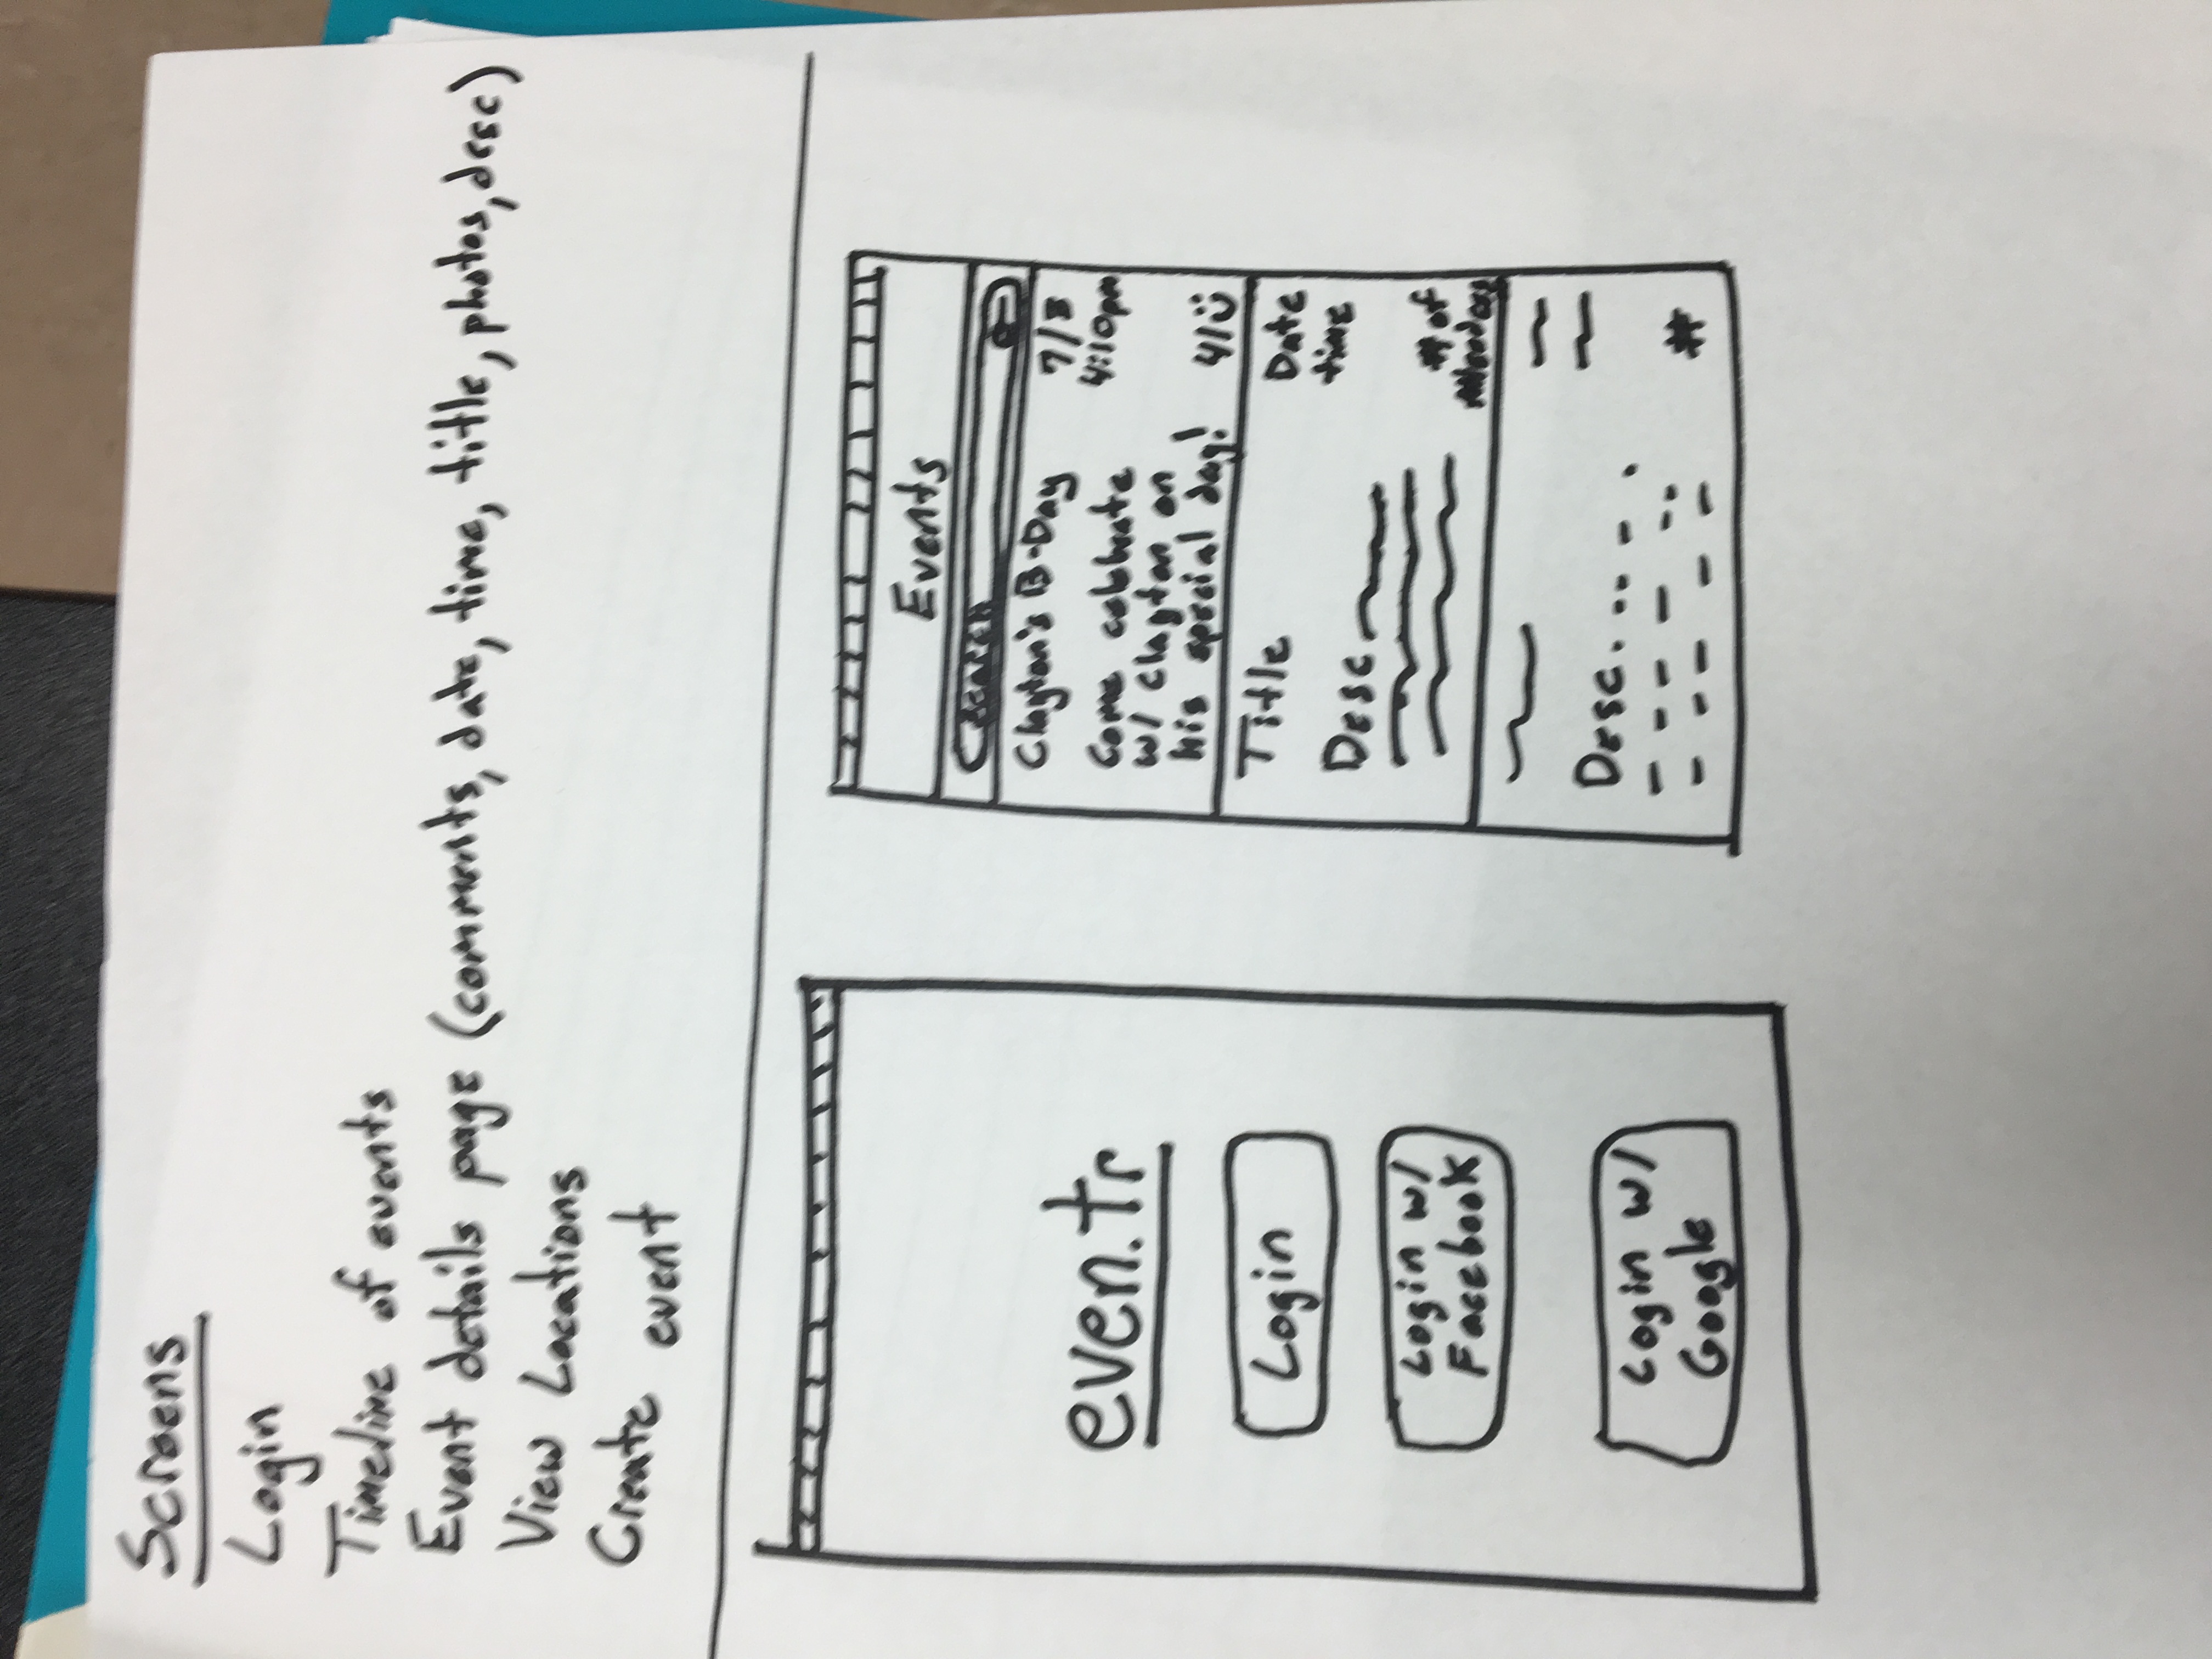 Screens
Login
Timeline of events
Event details page (comments, date, time, title, photos, desc)
View Locations
Create event
even.tr
Login
Login w/
Facebook
Login w/
Google
Events
Search
Clayton's B-Day 7/8
4:10pm
Come celebrate
w/ Clayton on
his special day! 41
Title Date
time
Desc
# of
Desc.
#